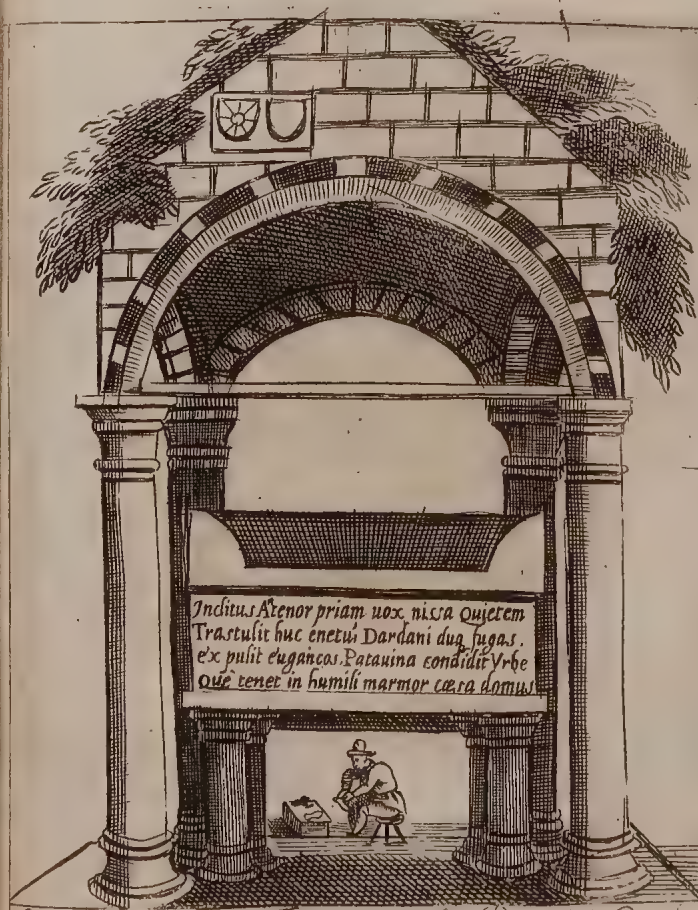 Inclitus Atenor priam uox nissa Quietem
Trastulit huc enetuῖ Dardani duq fugas.
ex pulit euganeos. Patauina condidit Vrbe
Quē tenet in humili marmor cæsa domus